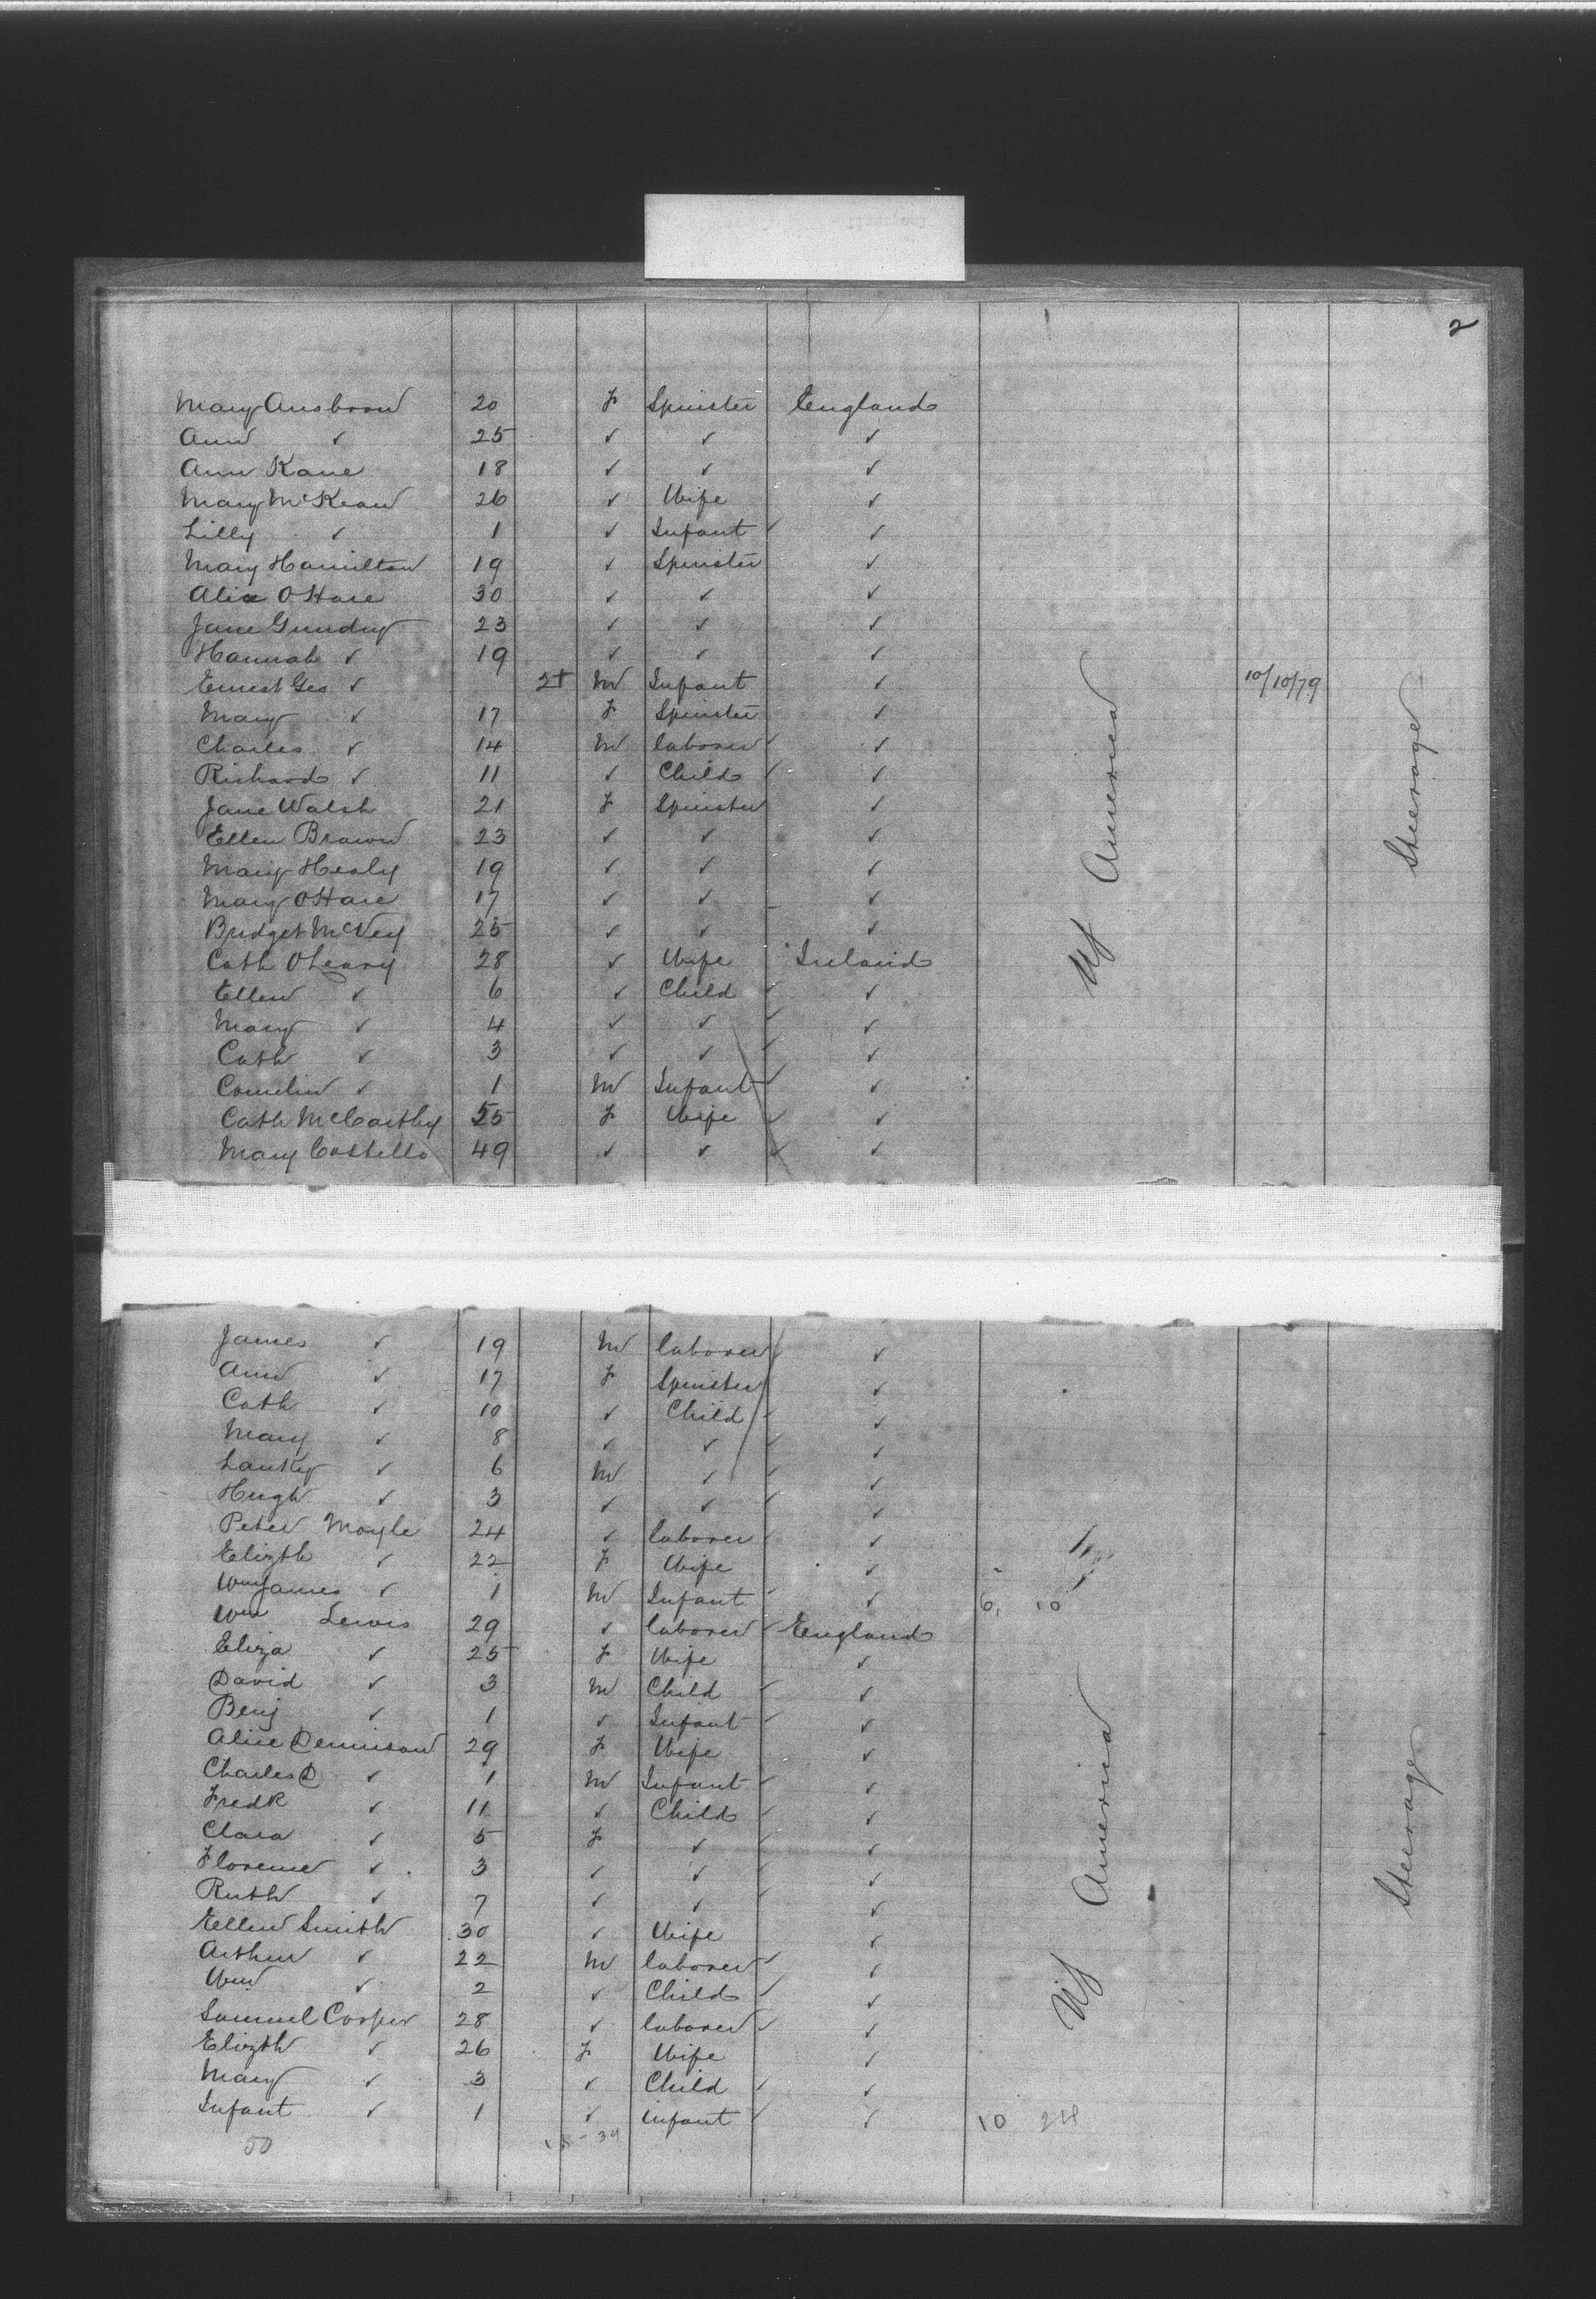 2
Mary Ansboro 20 F Spinster England
Ann ✓ 25 ✓ ✓ ✓
Ann Kane 18 ✓ ✓ ✓
Mary McKean 26 ✓ Wife ✓
Lilly ✓ 1 ✓ Infant ✓ ✓
Mary Hamilton 19 ✓ Spinster ✓
Alice OHare 30 ✓ ✓ ✓
Jane Gundry 23 ✓ ✓ ✓
Hannah ✓ 19 ✓ ✓ ✓
Ernest Geo ✓ M Infant ✓ 10/10/79
Mary ✓ 17 F Spinster ✓
Charles ✓ 14 M laborer ✓ ✓
Richard ✓ 11 ✓ Child ✓ ✓
Jane Walsh 21 F Spinster ✓
Ellen Brown 23 ✓ ✓ ✓
Mary Healy 19 ✓ ✓ ✓
Mary OHare 17 ✓ ✓ ✓
Bridget McVey 25 ✓ ✓ ✓
Cath OLeary 28 ✓ Wife Ireland
Ellen ✓ 6 ✓ Child ✓ ✓
Mary ✓ 4 ✓ ✓ ✓ ✓
Cath ✓ 3 ✓ ✓ ✓ ✓
✓ 1 M Infant ✓ ✓
Cath McCarthy 55 F Wife ✓ ✓
Mary Costello 49 ✓ ✓ ✓ ✓
US America
Steerage
James ✓ 19 M laborer ✓
Ann ✓ 17 F Spinster ✓
Cath ✓ 10 ✓ Child ✓ ✓
Mary ✓ 8 ✓ ✓ ✓ ✓
✓ 6 M ✓ ✓ ✓
Hugh ✓ 3 ✓ ✓ ✓ ✓
Peter Moyle 24 ✓ laborer ✓ ✓
Elizth ✓ 22 F Wife ✓
Wm James ✓ 1 M Infant ✓ ✓ 6, 10
Wm Lewis 29 ✓ laborer ✓ England
Eliza ✓ 25 F Wife ✓
David ✓ 3 M Child ✓ ✓
Benj ✓ 1 ✓ Infant ✓ ✓
Alice Dennison 29 F Wife ✓
Charles D ✓ 1 M Infant ✓ ✓
Fredk ✓ 11 ✓ Child ✓ ✓
Clara ✓ 5 F ✓ ✓ ✓
Florence ✓ 3 ✓ ✓ ✓ ✓
Ruth ✓ 7 ✓ ✓ ✓ ✓
Ellen Smith 30 ✓ Wife ✓
Arthur ✓ 22 M laborer ✓ ✓
Wm ✓ 2 ✓ Child ✓ ✓
Samuel Cooper 28 ✓ laborer ✓ ✓
Elizth ✓ 26 F Wife ✓
Mary ✓ 3 ✓ Child ✓ ✓
Infant ✓ 1 ✓ infant ✓ ✓ 10 24
50
US America
Steerage